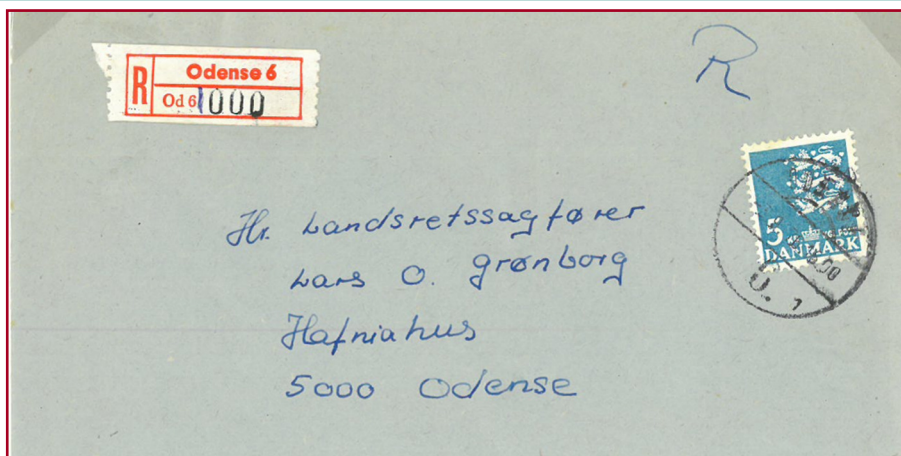 R
Odense 6
Od 6 1000
R
5
DANMARK
Hr. Landsretssagfører
Lars O. Grønborg
Hafniahus
5000 Odense